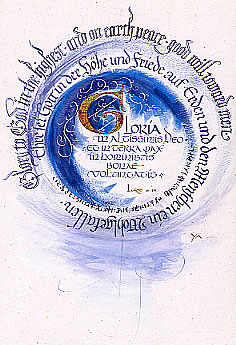 Glory to God in the highest and on earth peace good will toward men
Ehre sei Gott in der Höhe und Friede auf Erden und den Menschen ein Wohlgefallen
GLORIA
IN ALTISSIMIS DEO
ET IN TERRA PAX
IN HOMINIBUS
BONAE
VOLUNTATIS